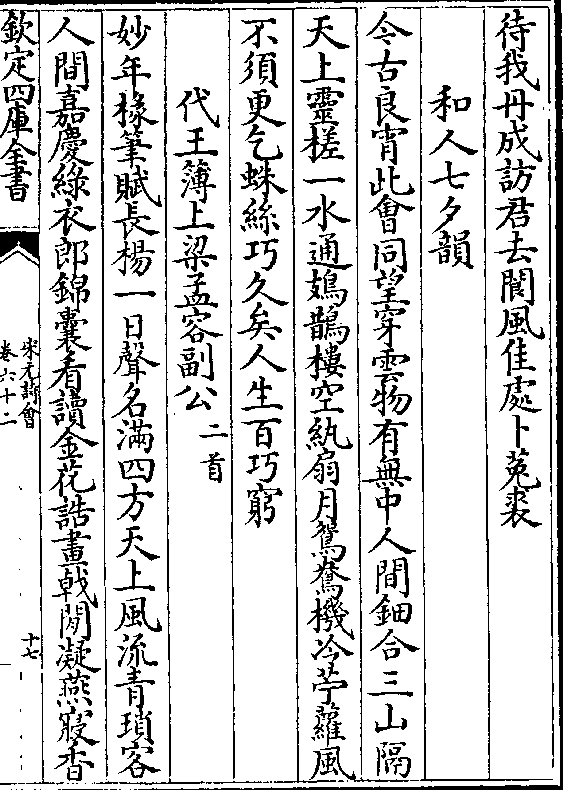 待我丹成訪君去閬風佳處卜菟裘
和人七夕韻
今古良宵此會同望穿雲物有無中人間鈿合三山隔
天上靈槎一水通鳷鵲樓空紈扇月鴛鴦機冷苧蘿風
不須更乞蛛絲巧久矣人生百巧窮
代王簿上梁孟容副公二首
妙年椽筆賦長楊一日聲名滿四方天上風流青瑣客
人間嘉慶綠衣郎錦囊看讀金花誥畫戟閒凝燕寢香
欽定四庫全書
宋元詩會
卷六十二
十七